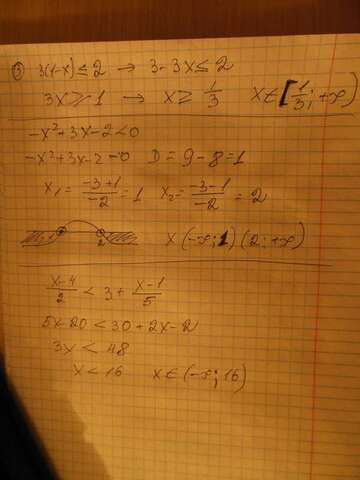 ③ 3(1-x)≤2 → 3-3x≤2
3x≥1 → x≥1/3 x∈[1/3; +∞)
-x²+3x-2<0
-x²+3x-2=0 D=9-8=1
x₁=(-3+1)/(-2)=1 x₂=(-3-1)/(-2)=2
1 2 x(-∞;1)(2;+∞)
(x-4)/2 < 3 + (x-1)/5
5x-20<30+2x-2
3x<48
x<16 x∈(-∞;16)